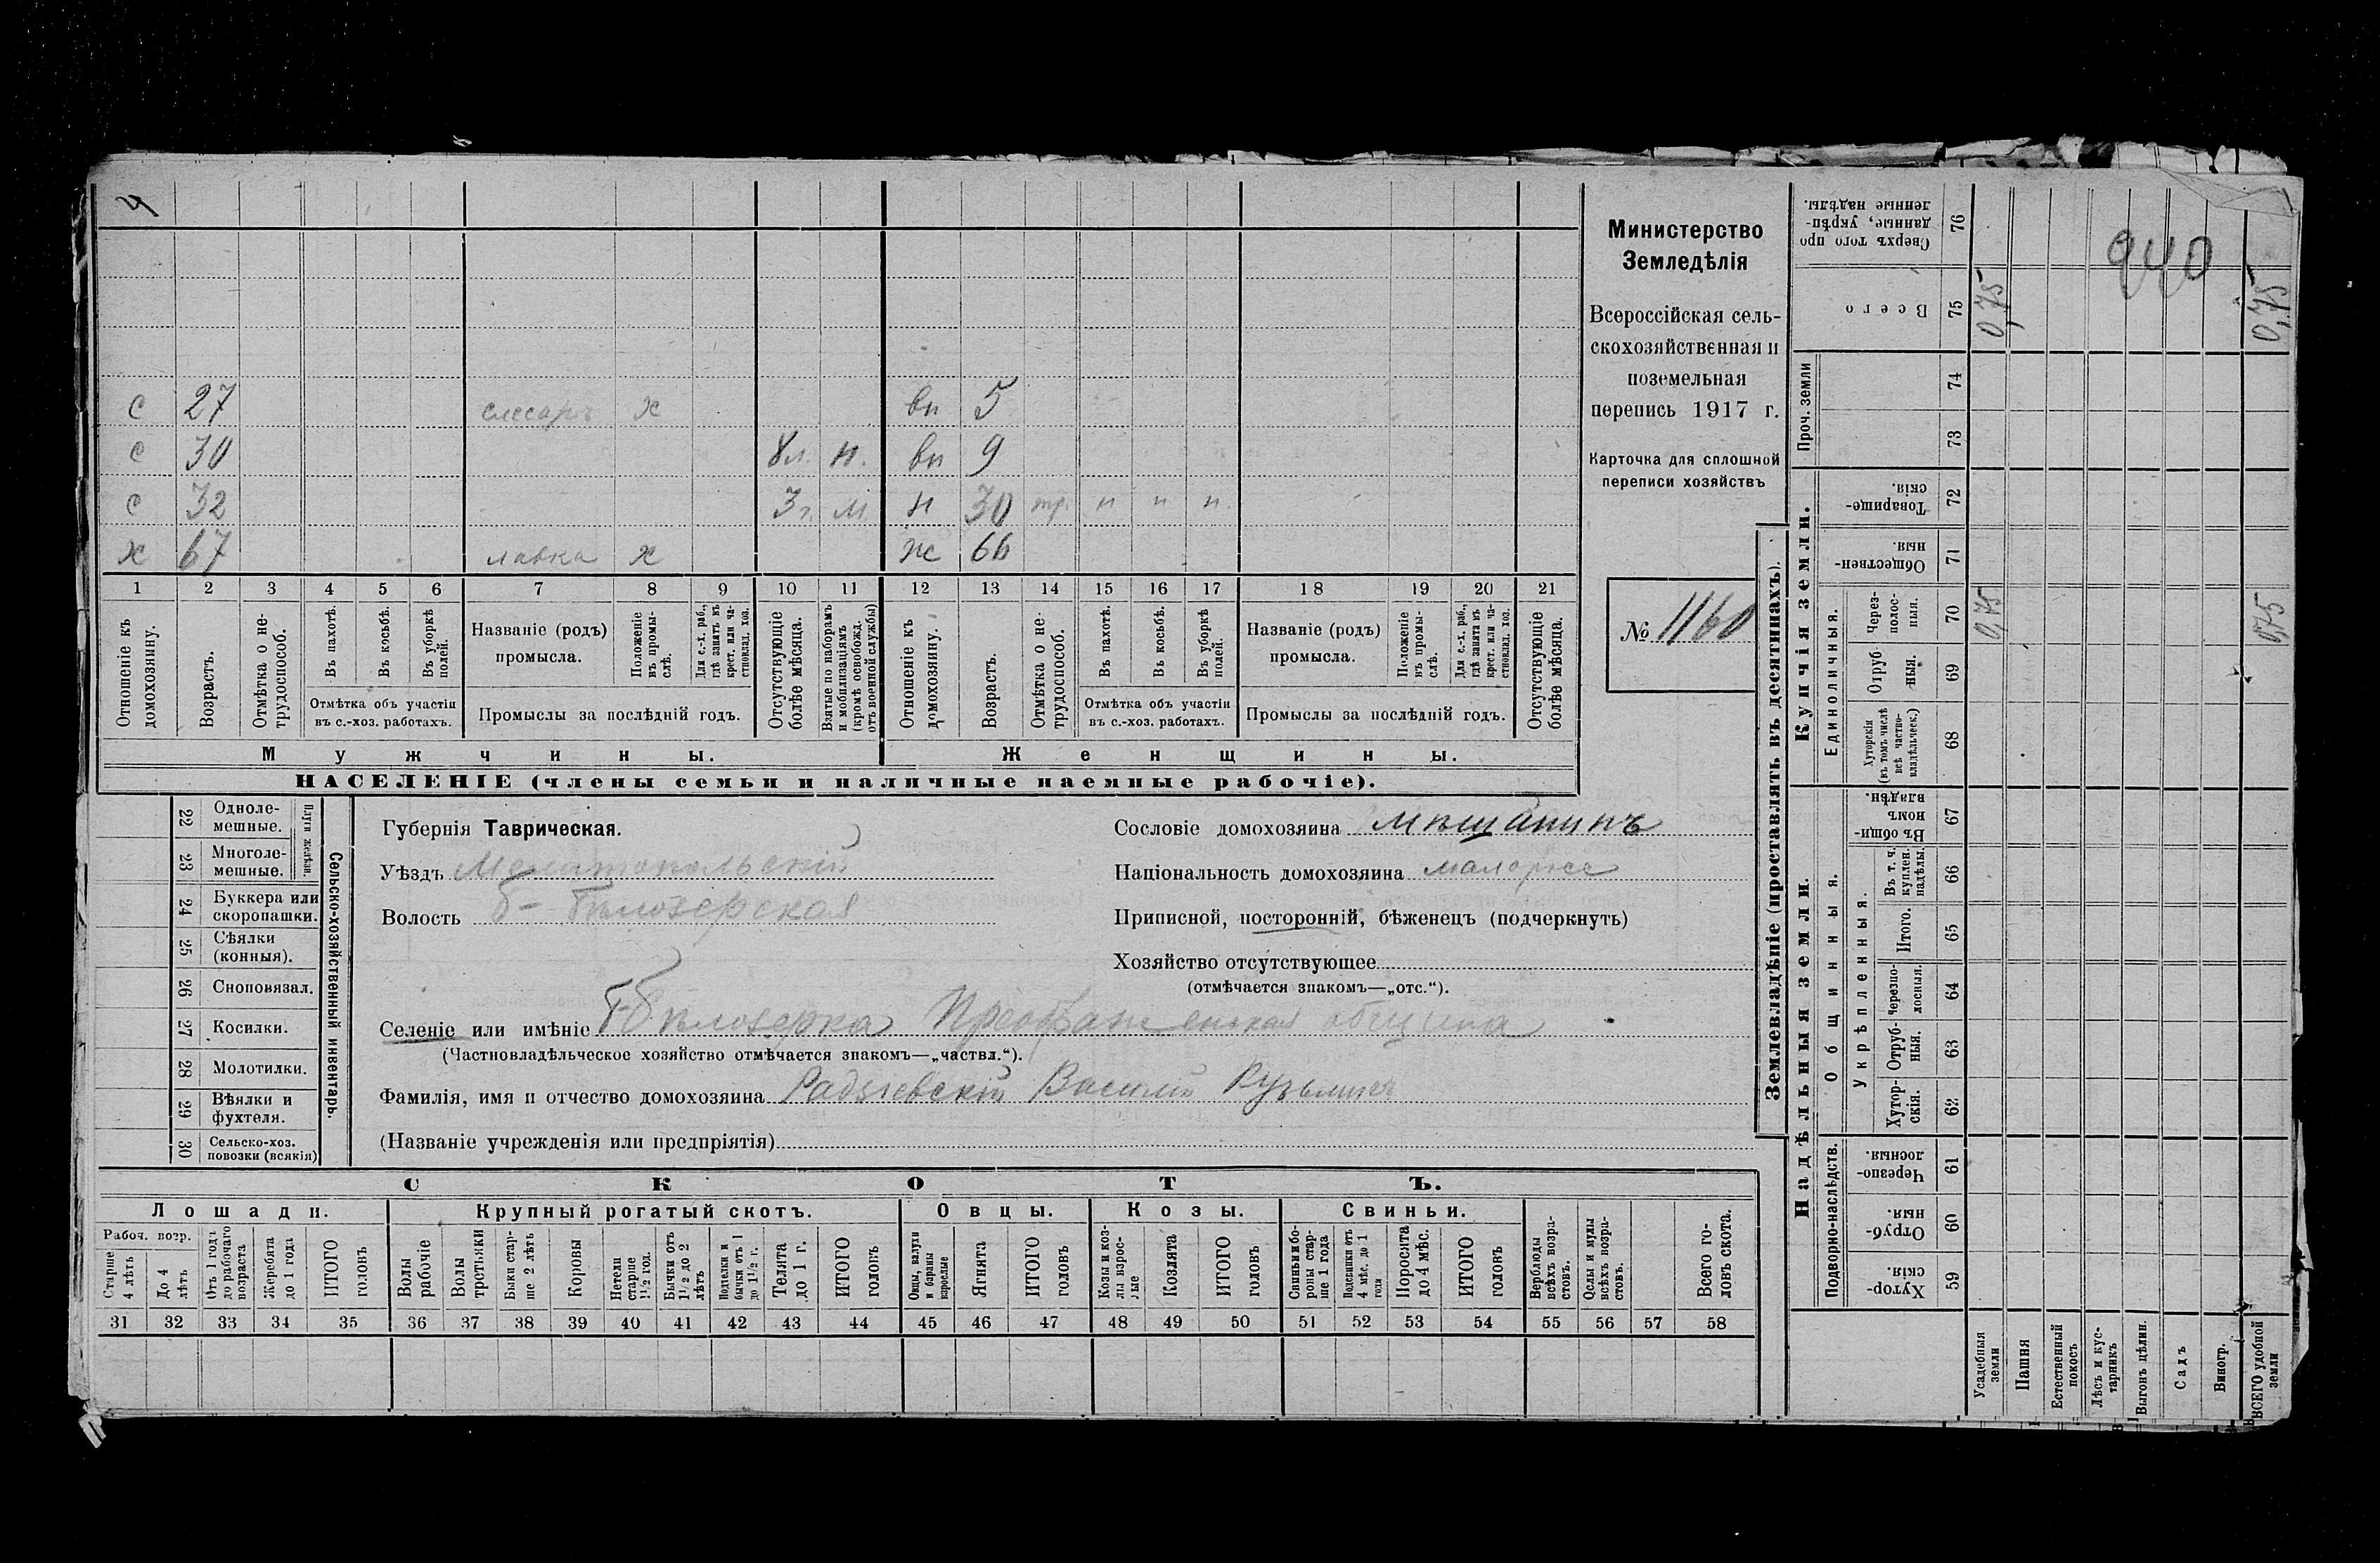 4
с 27 слесарь х вн 5
с 30 8 л. н. вн 9
с 32 3 г. м. н 30 тр. н н н
х 67 лавка х ж 66
1 2 3 4 5 6 7 8 9 10 11 12 13 14 15 16 17 18 19 20 21
Отношеніе къ домохозяину.
Возрастъ.
Отмѣтка о не-
трудоспособ.
Въ пахотѣ.
Въ косьбѣ.
Въ уборкѣ
полей.
Отмѣтка объ участіи
въ с.-хоз. работахъ.
Названіе (родъ)
промысла.
Положеніе
въ промы-
слѣ.
Для с.-х. раб.,
гдѣ занятъ въ
крест. или ча-
стновлад. хоз.
Промыслы за послѣдній годъ.
Отсутствующіе
болѣе мѣсяца.
Взятые по наборамъ
и мобилизаціямъ
(кромѣ освобожд.
отъ военной службы)
Отношеніе къ
домохозяину.
Возрастъ.
Отмѣтка о не-
трудоспособ.
Въ пахотѣ.
Въ косьбѣ.
Въ уборкѣ
полей.
Отмѣтка объ участіи
въ с.-хоз. работахъ.
Названіе (родъ)
промысла.
Положеніе
въ промы-
слѣ.
Для с.-х. раб.,
гдѣ занята въ
крест. или ча-
стновлад. хоз.
Промыслы за послѣдній годъ.
Отсутствующіе
болѣе мѣсяца.
Мужчины.
Женщины.
НАСЕЛЕНІЕ (члены семьи и наличные наемные рабочіе).
Министерство
Земледѣлія
Всероссійская сель-
скохозяйственная и
поземельная
перепись 1917 г.
Карточка для сплошной
переписи хозяйствъ
№ 1160
22 Одноле-
мешные.
23 Многоле-
мешные.
Плуги желѣзн.
24 Буккера или
скоропашки.
25 Сѣялки
(конныя).
26 Сноповязал.
27 Косилки.
28 Молотилки.
29 Вѣялки и
фухтеля.
30 Сельско-хоз.
повозки (всякія)
Сельско-хозяйственный инвентарь.
Губернія Таврическая.
Уѣздъ Мелитопольскій
Волость Б-Бѣлозерская
Сословіе домохозяина мѣщанинъ
Національность домохозяина малоросс
Приписной, посторонній, бѣженецъ (подчеркнуть)
Хозяйство отсутствующее
(отмѣчается знакомъ—„отс.“).
Селеніе или имѣніе Б-Бѣлозерка Преображенская община
(Частновладѣльческое хозяйство отмѣчается знакомъ—„частвл.“).
Фамилія, имя и отчество домохозяина Радзіевскій Василій Кузьмичъ
(Названіе учрежденія или предпріятія)
СКОТЪ.
Лошади. Крупный рогатый скотъ. Овцы. Козы. Свиньи.
Рабоч. возр.
Старше
4 лѣтъ
До 4
лѣтъ
Отъ 1 года
до рабочаго
возраста
Жеребята
до 1 года
ИТОГО
головъ
Волы
рабочіе
Волы
третьяки
Быки стар-
ше 2 лѣтъ
Коровы
Нетели
старше
1½ год.
Бычки отъ
1½ до 2
лѣтъ
Подтелки и
бычки отъ 1
до 1½ г.
Телята
до 1 г.
ИТОГО
головъ
Овцы, валухи
и бараны
взрослые
Ягнята
ИТОГО
головъ
Козы и коз-
лы взрос-
лые
Козлята
ИТОГО
головъ
Свиньи и бо-
ровы стар-
ше 1 года
Подсвинки отъ
4 мѣс. до 1
года
Поросята
до 4 мѣс.
ИТОГО
головъ
Верблюды
всѣхъ возра-
стовъ.
Ослы и мулы
всѣхъ возра-
стовъ.
Всего го-
ловъ скота.
31 32 33 34 35 36 37 38 39 40 41 42 43 44 45 46 47 48 49 50 51 52 53 54 55 56 57 58
Землевладѣніе (проставлять въ десятинахъ).
Сверхъ того про-
данные, укрѣп-
ленные надѣлы.
76
940
Всего 75 0,75 0,75
Проч. земли
74
73
Купчія земли.
Товарище-
скія.
72
Обществен-
ныя.
71
Единоличныя.
Через-
полос-
ныя.
70 0,75 0,75
Отруб
ныя.
69
Хуторскія
(въ томъ числѣ
всѣ частно-
владѣльческ.)
68
Надѣльныя земли.
Общинныя.
Въ общи-
номъ
владѣн.
67
Укрѣпленныя.
Въ т. ч.
куплен.
надѣлы.
66
Итого.
65
Черезпо-
лосныя.
64
Отруб-
ныя.
63
Хутор-
скія.
62
Подворно-наслѣдств.
Черезпо-
лосныя.
61
Отруб-
ныя.
60
Хутор-
скія.
59
Усадебныя
земли
Пашня
Естественный
покосъ
Лѣсъ и кус-
тарникъ
Выгонъ цѣлин.
Садъ
Виногр.
ВСЕГО удобной
земли